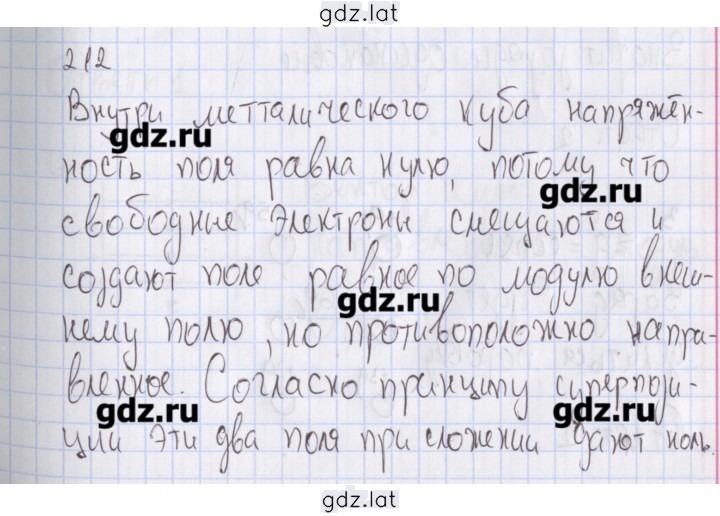 gdz.lat
212
Внутри метталического куба напряжён-
gdz.ru
ность поля равна нулю, потому что
gdz.ru
свободные электроны смещаются и
создают поле равное по модулю внеш-
gdz.ru
нему полю, но противоположно напра-
вленное. Согласно принципу суперпози-
gdz.ru gdz.ru
ции эти два поля при сложении дают ноль.
gdz.lat